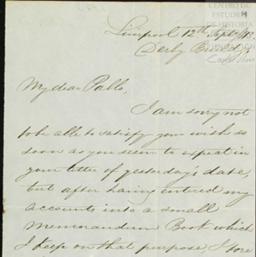 CENTRO DE
ESTUDIOS
DE HISTORIA
Liverpool 12th Sept
Derby
My dear Pablo,
I am sorry not
to be able to satisfy your wish so
soon as you seem to expect in
your letter of yesterday's date,
but after having entered my
accounts into a small
Memorandum Book which
I keep on that purpose, I